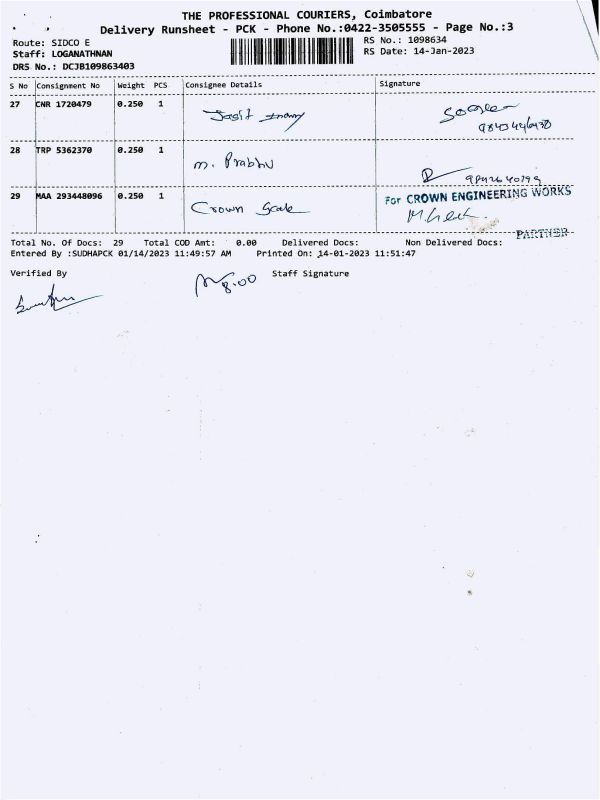 THE PROFESSIONAL COURIERS, Coimbatore
Delivery Runsheet - PCK - Phone No.:0422-3505555 - Page No.:3
Route: SIDCO E
Staff: LOGANATHNAN
DRS No.: DCJB109863403
RS No.: 1098634
RS Date: 14-Jan-2023
S No Consignment No Weight PCS Consignee Details Signature
27 CNR 1720479 0.250 1
28 TRP 5362370 0.250 1 M. Prabhu
29 MAA 293448096 0.250 1 Crown Scale
For CROWN ENGINEERING WORKS
PARTNER
Total No. Of Docs: 29 Total COD Amt: 0.00 Delivered Docs: Non Delivered Docs:
Entered By :SUDHAPCK 01/14/2023 11:49:57 AM Printed On: 14-01-2023 11:51:47
Verified By Staff Signature